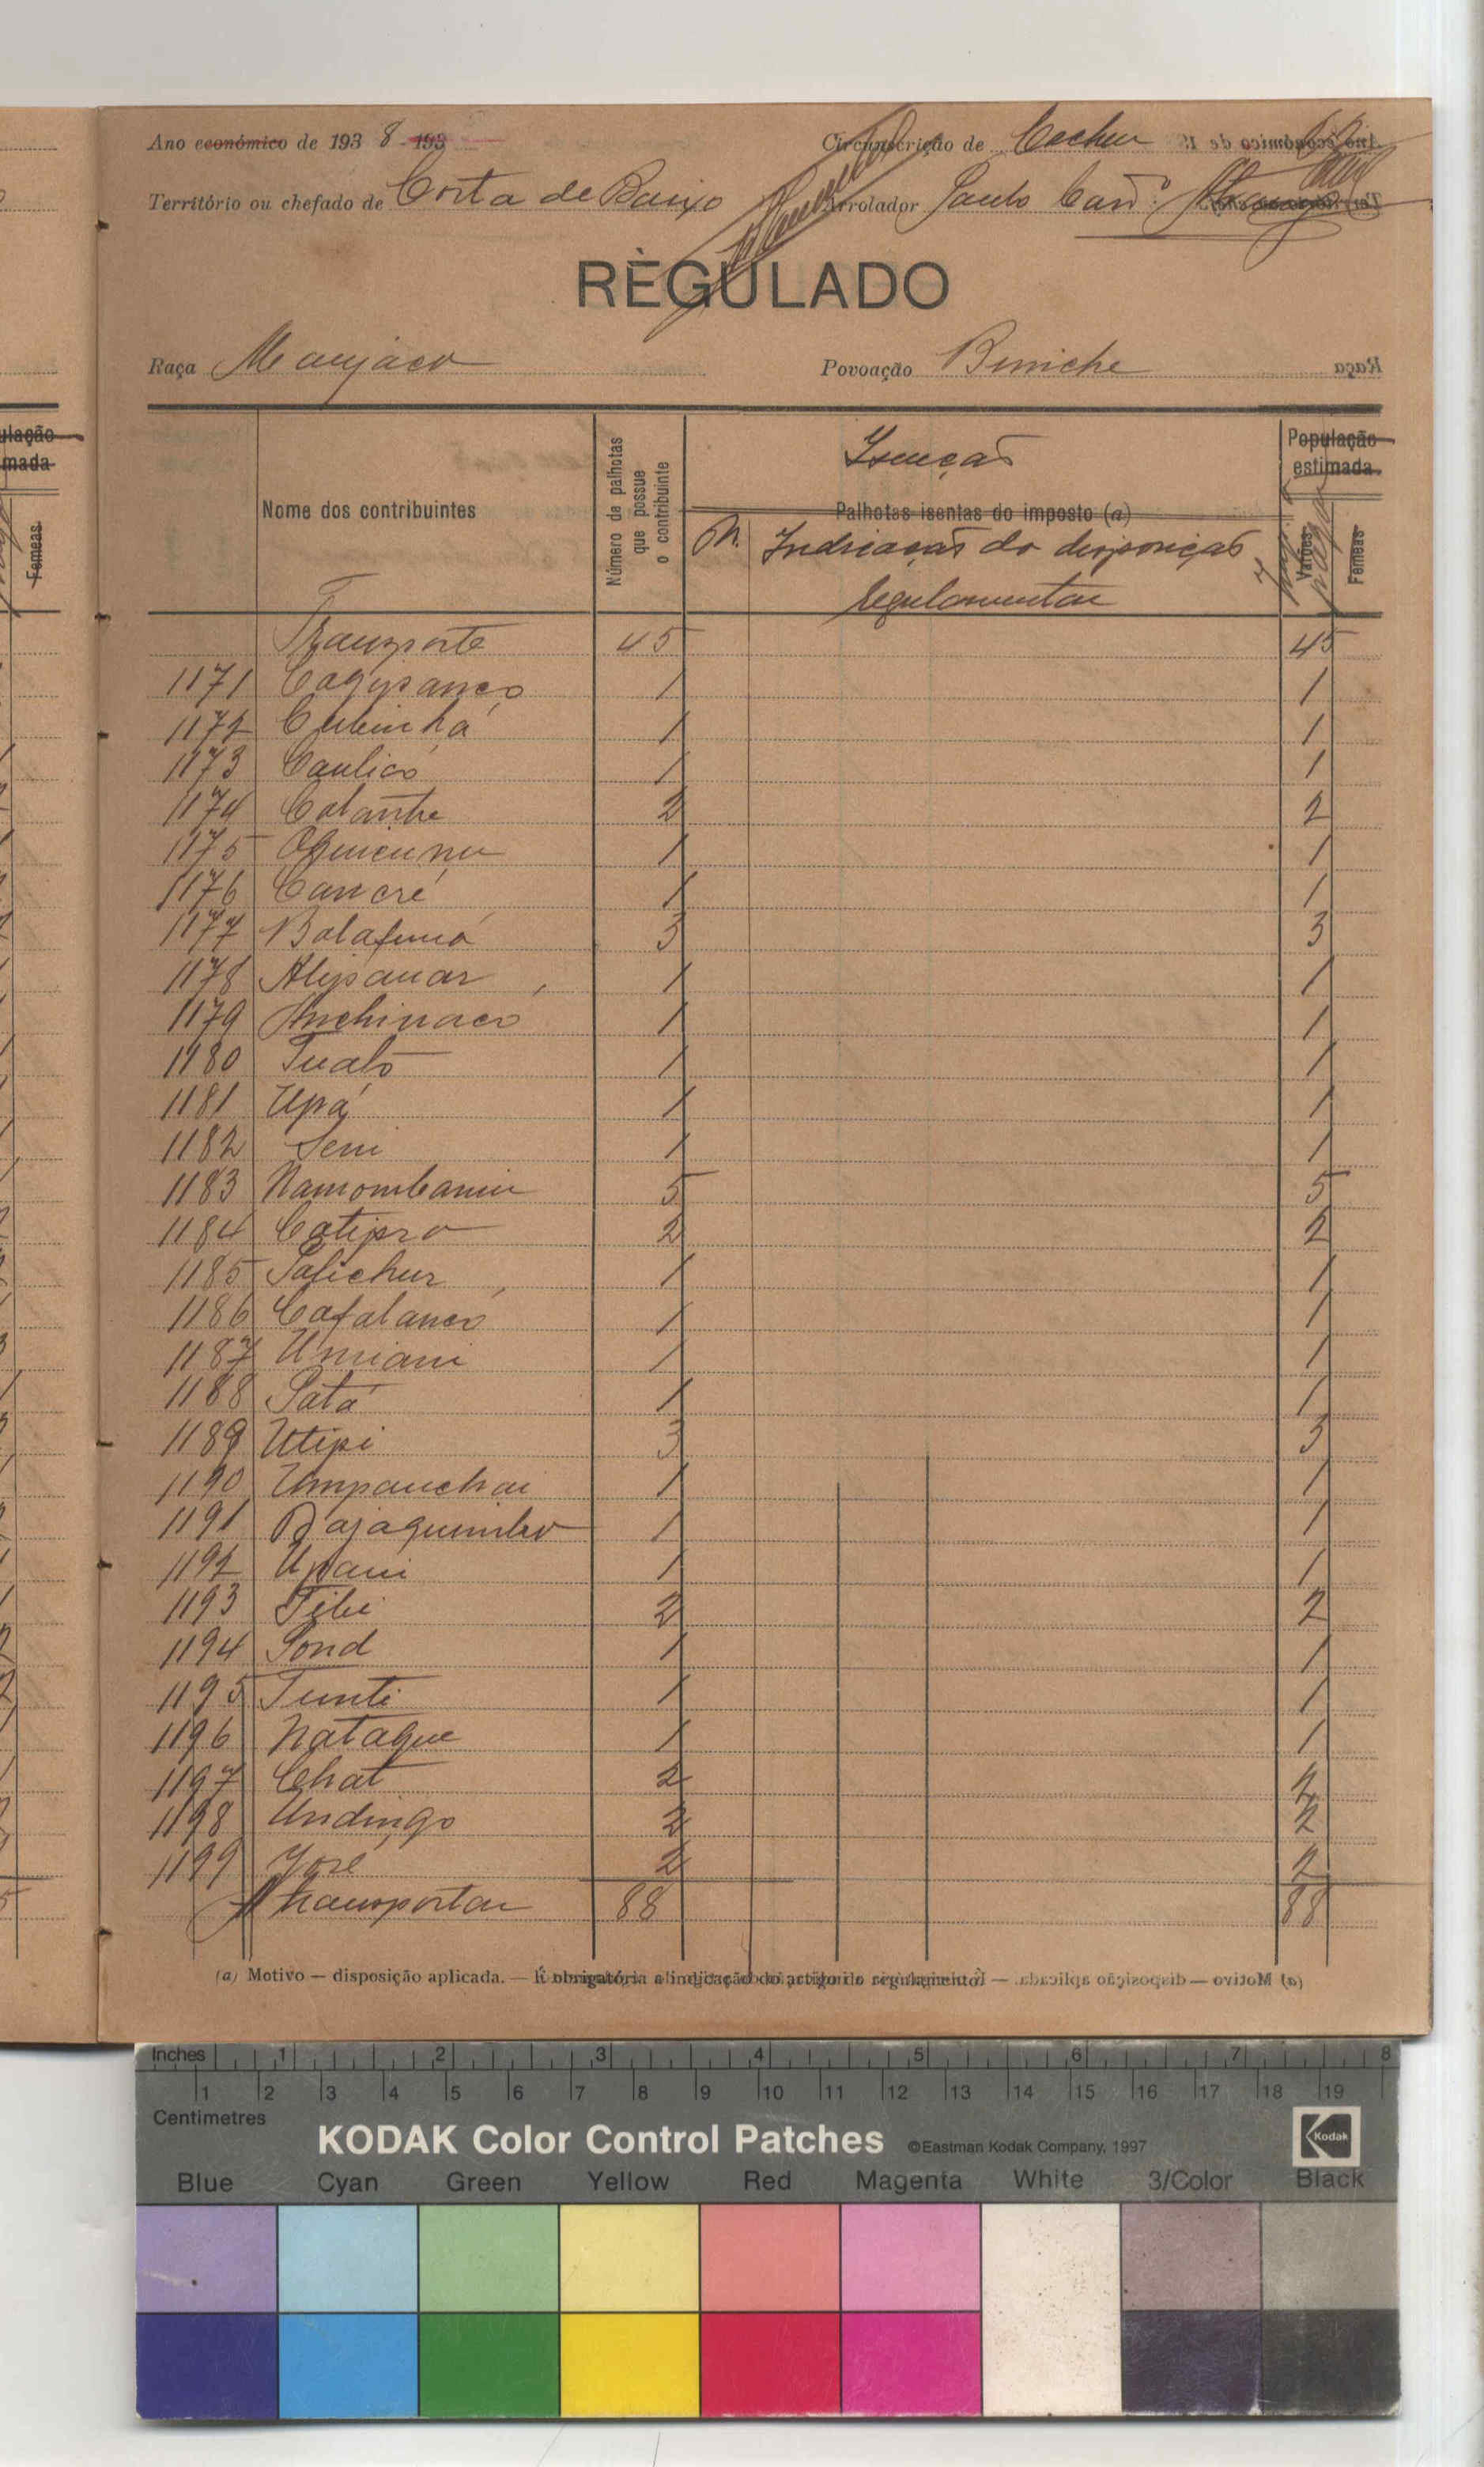 Ano económico de 193 8 - 193
Circunscrição de Cacheu
Território ou chefado de Costa de Baixo
Arrolador Paulo
REGULADO
Raça Manjaco
Povoação Biniche
Nome dos contribuintes
Número de palhotas que possue o contribuinte
Isenção
Palhotas isentas do imposto (a)
N. Indicação do disposição
regulamentar
População estimada
Varões
Femeas
Transporte 45 45
1171 1 1
1172 1 1
1173 Caulicó 1 1
1174 Catanhe 2 2
1175 1 1
1176 Cancré 1 1
1177 Balafumá 3 3
1178 1 1
1179 Anchinacó 1 1
1180 Tualó 1 1
1181 Upá 1 1
1182 Seni 1 1
1183 Namombamim 5 5
1184 Catipro 2 2
1185 Safichur 1 1
1186 Cafalancó 1 1
1187 Umiani 1 1
1188 Satá 1 1
1189 Utipi 3 3
1190 Umpanchai 1 1
1191 1 1
1192 Upani 1 1
1193 2 2
1194 Sond 1 1
1195 Tunti 1 1
1196 Nataque 1 1
1197 Chat 2 2
1198 Undingo 2 2
1199 José 2 2
A transportar 88 88
(a) Motivo — disposição aplicada. — É obrigatória a indicação do artigo do regulamento.
ulação
mada
Femeas
Inches 1 2 3 4 5 6 7 8
1 2 3 4 5 6 7 8 9 10 11 12 13 14 15 16 17 18 19
Centimetres
KODAK Color Control Patches ©Eastman Kodak Company, 1997 Kodak
Blue Cyan Green Yellow Red Magenta White 3/Color Black